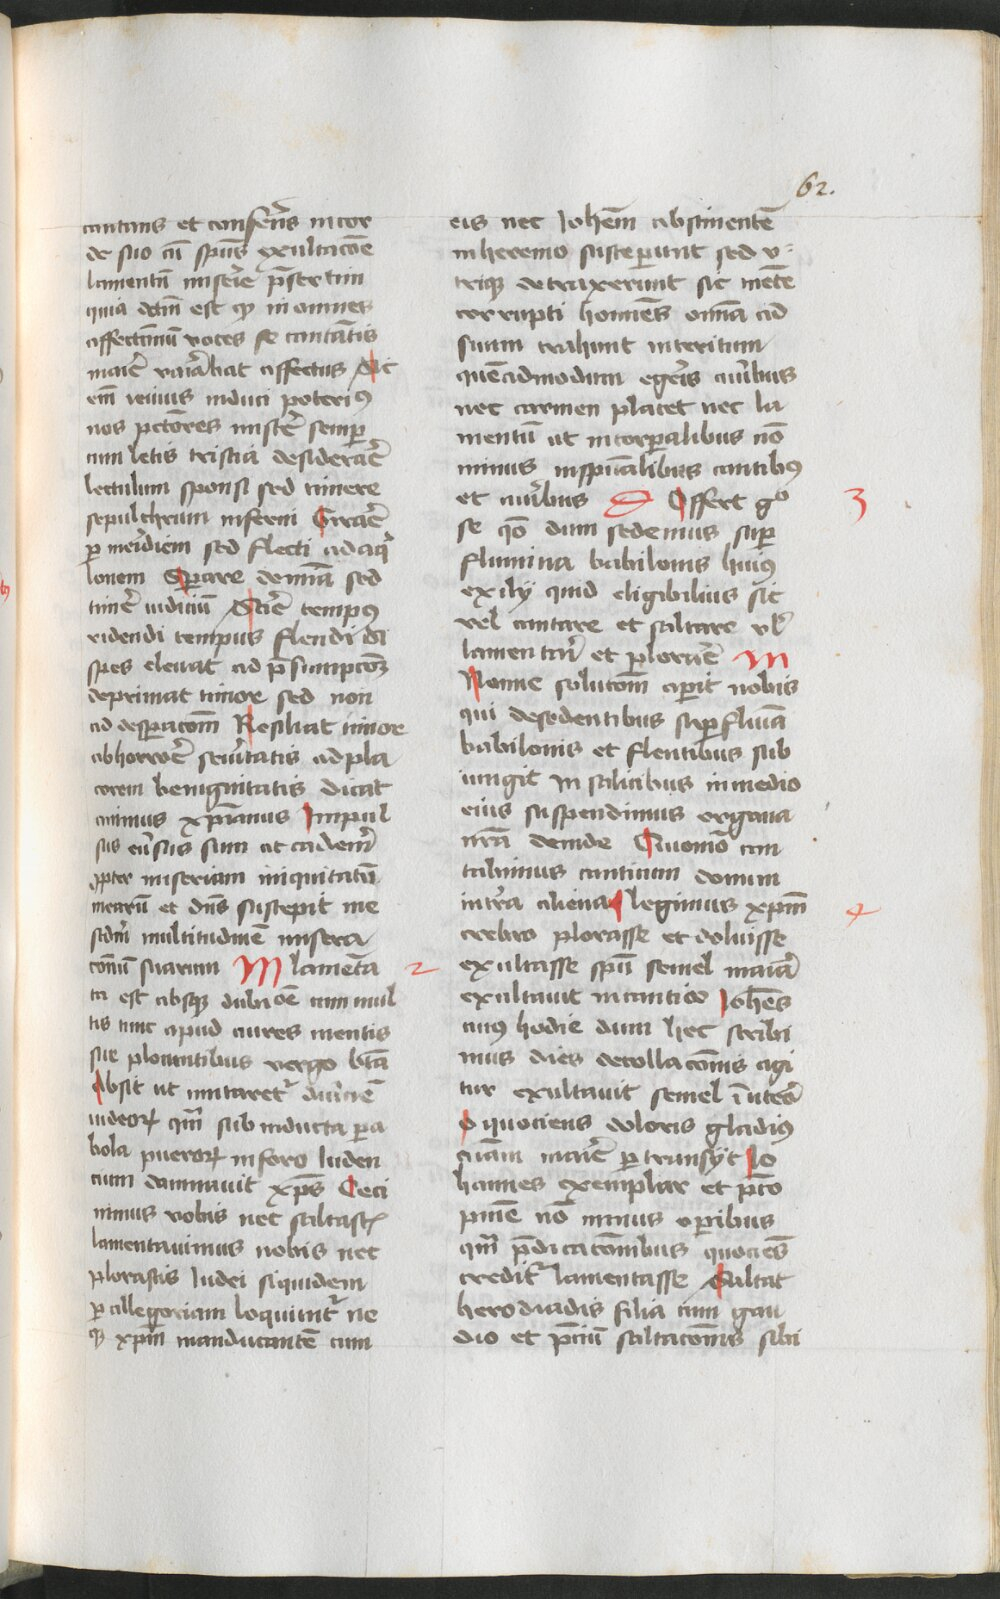 62.
cantans et conferēs in cor
de suo cū spūs exultacōe
lamentū miserie p̄sertim
quia dictū est qd in omnes
affectuum voces se cantātis
mater variabat affectus Sic
em̄ induci poterimꝰ
nos pctōres miseri semper
cum letis tristia desiderare
lectulum sponsi sed timere
sepulchrum inferni Gracē
per meridiem sed flecti ad aqui
lonem Sperare veniā sed
timere iudiciū Scire tempus
ridendi tempus flendi Si
spes elevat ad p̄sumpcōem
deprimat timore sed non
ad desperacōem Resiliat timore
abhorrore severitatis ad pla
corem benignitatis dicat
animus xp̄ianus Impul
sus eūsus sum ut caderem
propter miseriam iniquitatū
mearū et dn̄s suscepit me
scdm multitudinē misera
cionū suarum M lamenta 2
ta est absque dubitacōe cum mul
tis tunc apud aures mentis
sue plorantibus virgo bt̄a
Absit ut imitaretur duriciē
iudeorum quos sub inducta para
bola puerorum in foro luden
cium damnavit xp̄s Ceci
nimus vobis nec saltastis
lamentavimus vobis nec
plorastis Iudei siquidem
per allegoriam loquuntur ne
que xp̄m manducantē cum
eis nec Iohēm abstinentē
in heremo susceperunt sed u-
trique detraxerunt sic mēte
corrupti homines omnia ad
suum trahunt interitum
quēadmodum egris auribus
nec carmen placet nec la
mentū ut in corporalibus nō
minus in spūalibus cantibus
et auribus D Offert gͦ 3
se qō dum sedemus super
flumina babilonis huius
exilij quid eligibilius sit
vel cantare et saltare vel
lamentari et plorare M
Nonne solucōem aperit nobis
qui desedentibus super fluvia
babilonis et flentibus sub
iungit In salicibus in medio
eius suspendimus organa
nrā deinde Quomō can
tabimus canticum domini
in terra aliena legimus xp̄m 4
crebro plorasse et doluisse
exultasse spū semel mariā
exultavit in cantico Iohēs
cuius hodie dum hec scribi
mus dies decollacōnis agi
tur exultavit semel in utero
O quociens doloris gladius
aīam matris pertransijt Io
hannes exemplar et p̄co
pnīe nō minus operibus
quam p̄dicacōnibus quociēs
creditur lamentasse Saltat
herodiadis filia cum gau
dio et p̄cium saltacōnis sibi